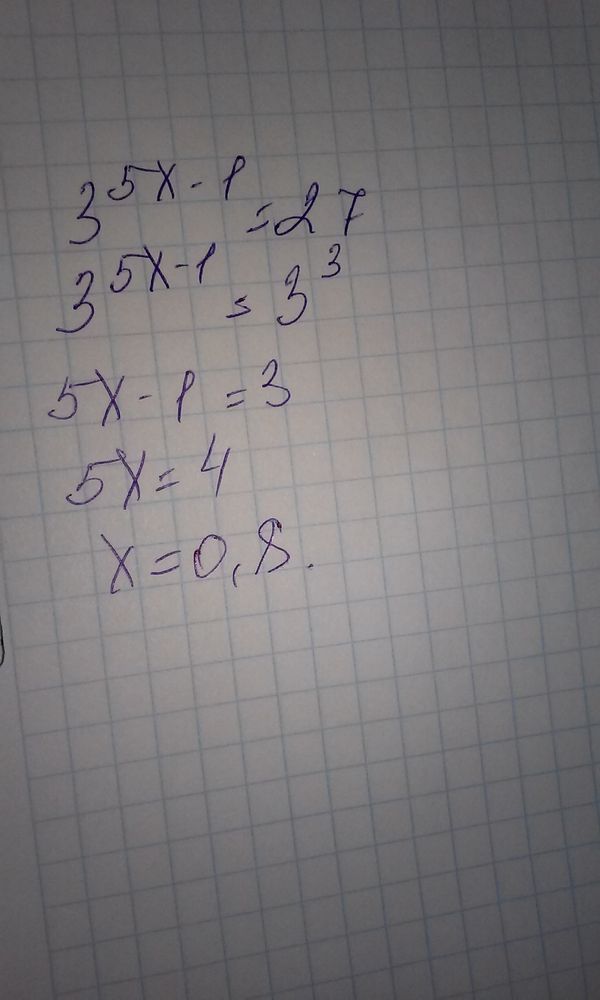 3^{5x-1} = 27
3^{5x-1} = 3^3
5x - 1 = 3
5x = 4
x = 0,8.